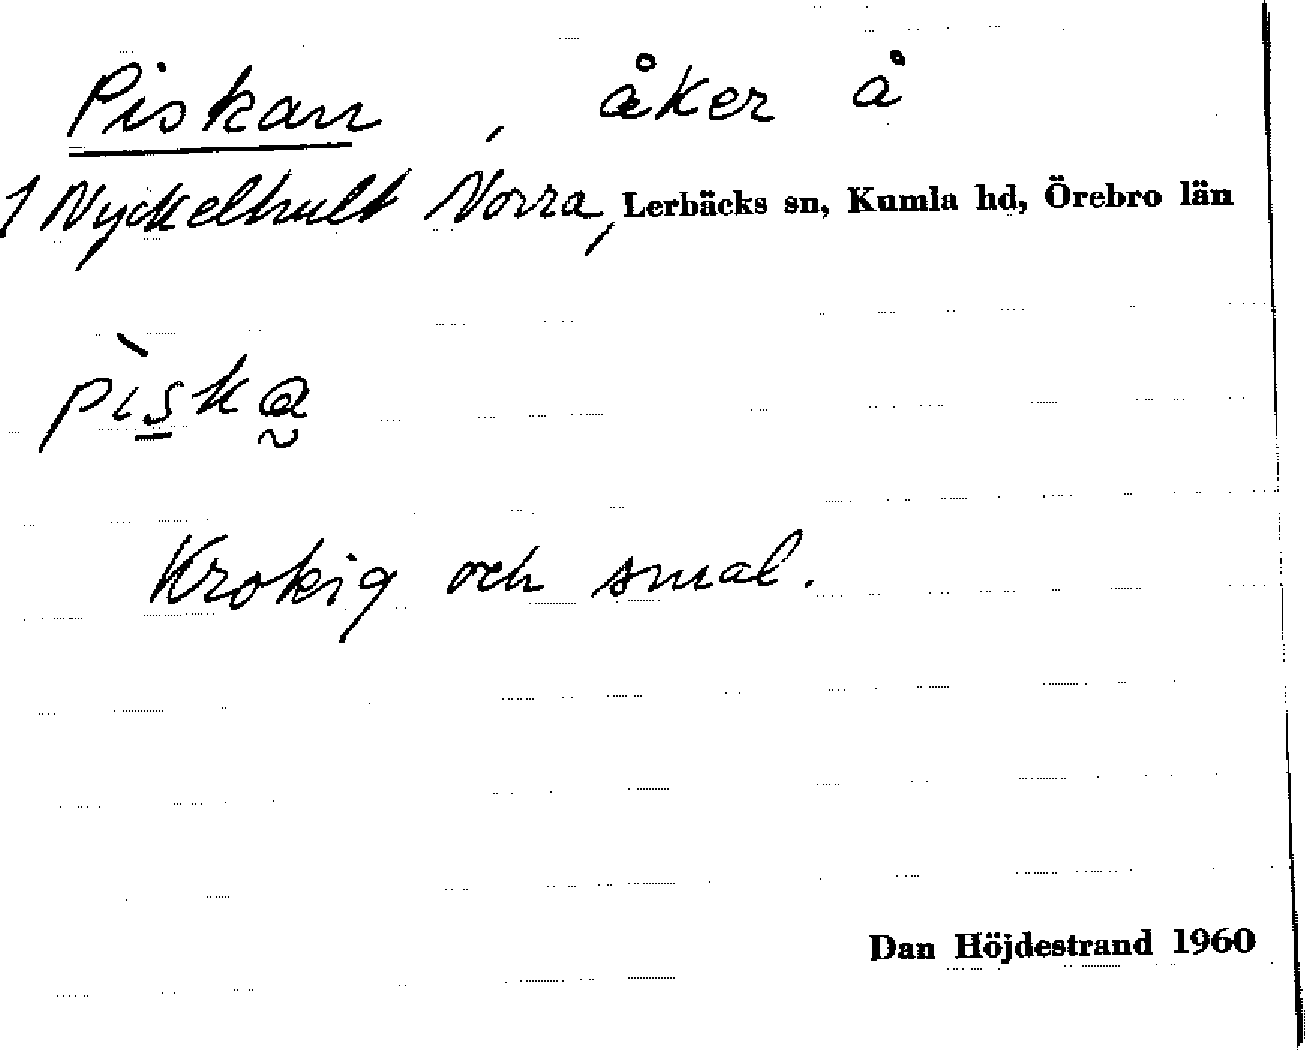 Piskan, åker å
1 Nyckelhult Norra, Lerbäcks sn, Kumla hd, Örebro län
pìska
Krokig och smal.
Dan Höjdestrand 1960